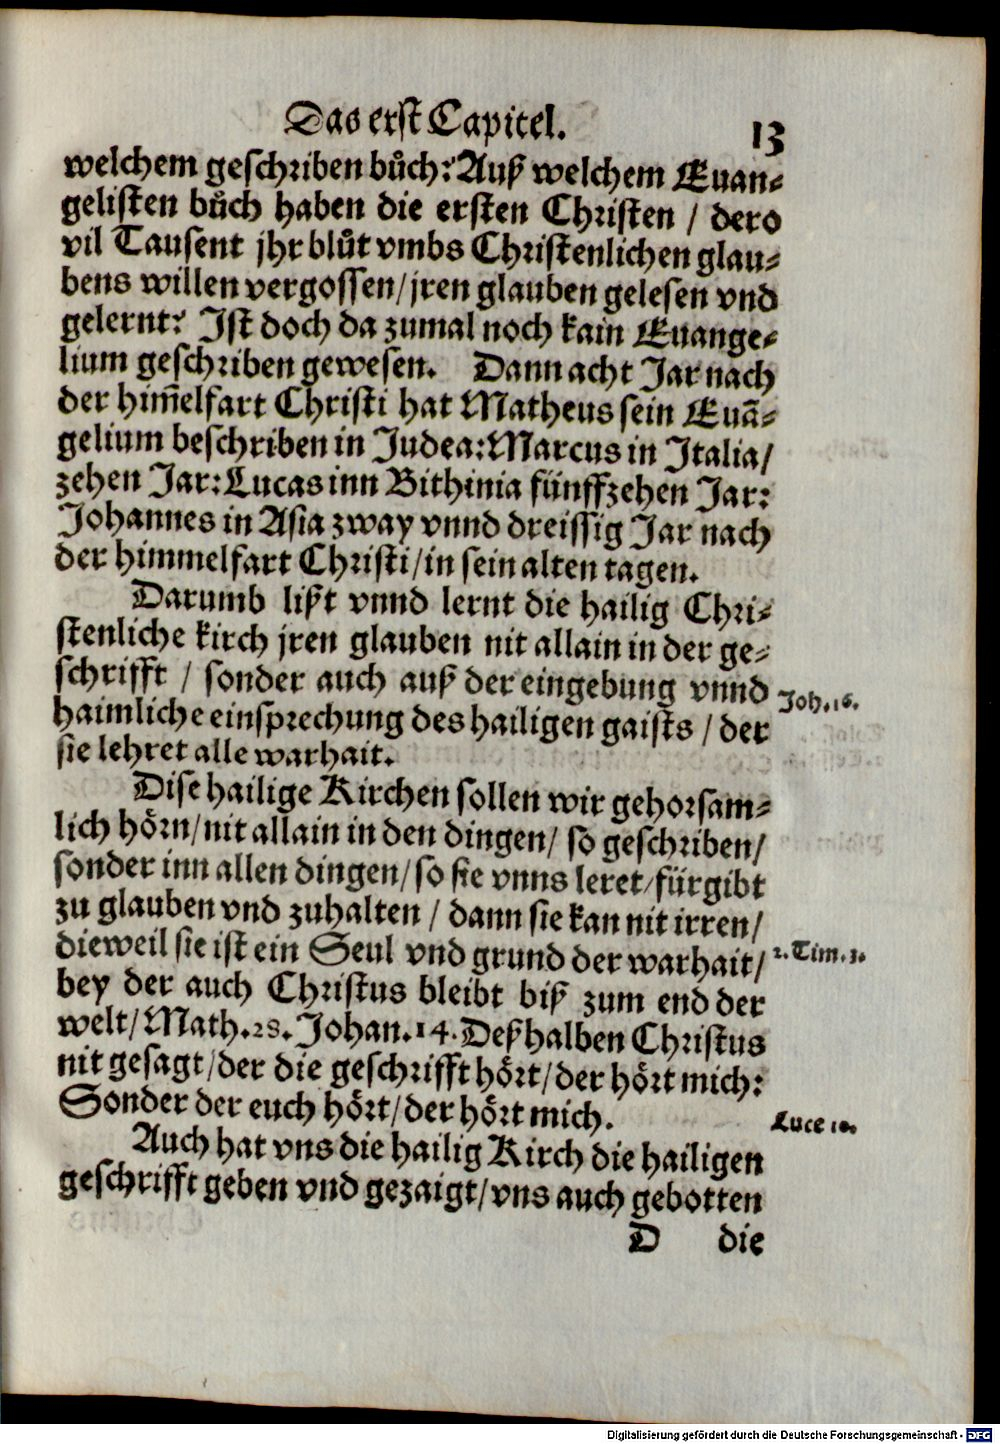 Das erst Capitel. 13
welchem geschriben bůch? Auß welchem Euan-
gelisten bůch haben die ersten Christen / dero
vil Tausent jhr blůt vmbs Christenlichen glau-
bens willen vergossen / jren glauben gelesen vnd
gelernt? Ist doch da zumal noch kain Euange-
lium geschriben gewesen. Dann acht Jar nach
der him̄elfart Christi hat Matheus sein Euā-
gelium beschriben in Judea: Marcus in Italia /
zehen Jar: Lucas inn Bithinia fünffzehen Jar:
Johannes in Asia zway vnnd dreissig Jar nach
der himmelfart Christi / in sein alten tagen.
Darumb lißt vnnd lernt die hailig Chri-
stenliche kirch jren glauben nit allain in der ge-
schrifft / sonder auch auß der eingebung vnnd
Joh. 16.
haimliche einsprechung des hailigen gaists / der
sie lehret alle warhait.
Dise hailige Kirchen sollen wir gehorsam-
lich hörn / nit allain in den dingen / so geschriben /
sonder inn allen dingen / so sie vnns leret / fürgibt
zu glauben vnd zuhalten / dann sie kan nit irren /
dieweil sie ist ein Seul vnd grund der warhait /
1. Tim. 3.
bey der auch Christus bleibt biß zum end der
welt / Math. 28. Johan. 14. Deßhalben Christus
nit gesagt / der die geschrifft hört / der hört mich:
Sonder der euch hört / der hört mich.
Luce 10.
Auch hat vns die hailig Kirch die hailigen
geschrifft geben vnd gezaigt / vns auch gebotten
D die
Digitalisierung gefördert durch die Deutsche Forschungsgemeinschaft - DFG